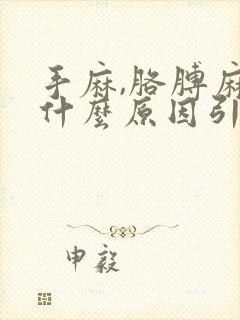 手麻,胳膊麻
什麼原因引
申毅